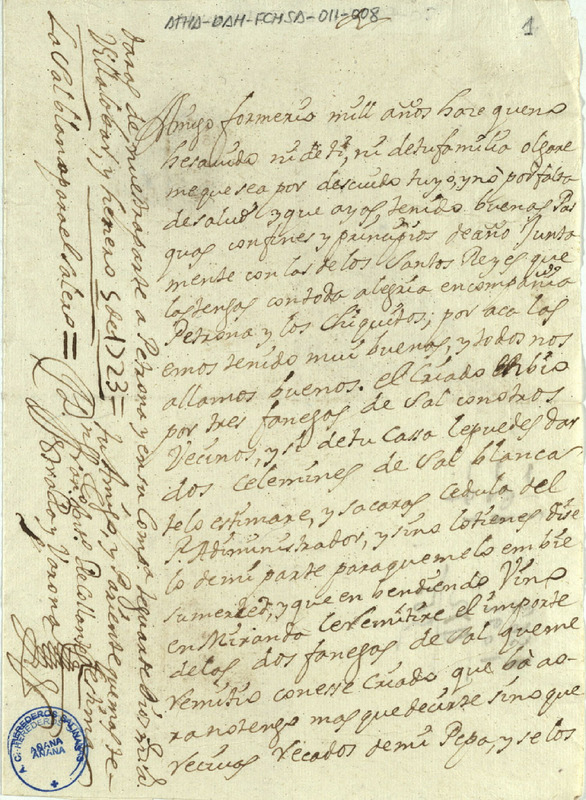 ATHA-DAH-FCHSA-011-008
1
Amigo formerio mill años haze que no
he savido ni de ti, ni de tu familia olgare
me que sea por descuido tuyo, y no por falta
de salud y que ayas tenido buenas Pas
quas con fines y principios de año Junta
mente con las de los Santos Reyes que
las tengas con toda alegria en compañia
Petrona y los Chiquitos, por aca las
emos tenido mui buenas, y todos nos
allamos buenos. el Criado embio
por tres fanegas de Sal con otros
Vecinos, y si de tu Cassa le puedes dar
dos Celemines de Sal blanca
te lo estimare, y sacaras Cedula del
Sr Administrador, y sino lo tienes dise
lo de mi parte para que me lo embie
su merced, y que en bendiendo Vino
en Miranda le Remitire el importe
de las dos fanegas de Sal que me
Remitio con esse Criado que ba ao
ra no tengo mas que decirte sino que
Recivas Recados de mi Pepa, y se los
daras de nuestra parte a Petrona y en su Compa. te guarde Dios m. a.
Villalobar y henero 5 de 1723 =
tu Amigo, y Pariente que mas te
estima
La Sal blanca para el Salero =
A.C. HEREDEROS SALINAS
AÑANA